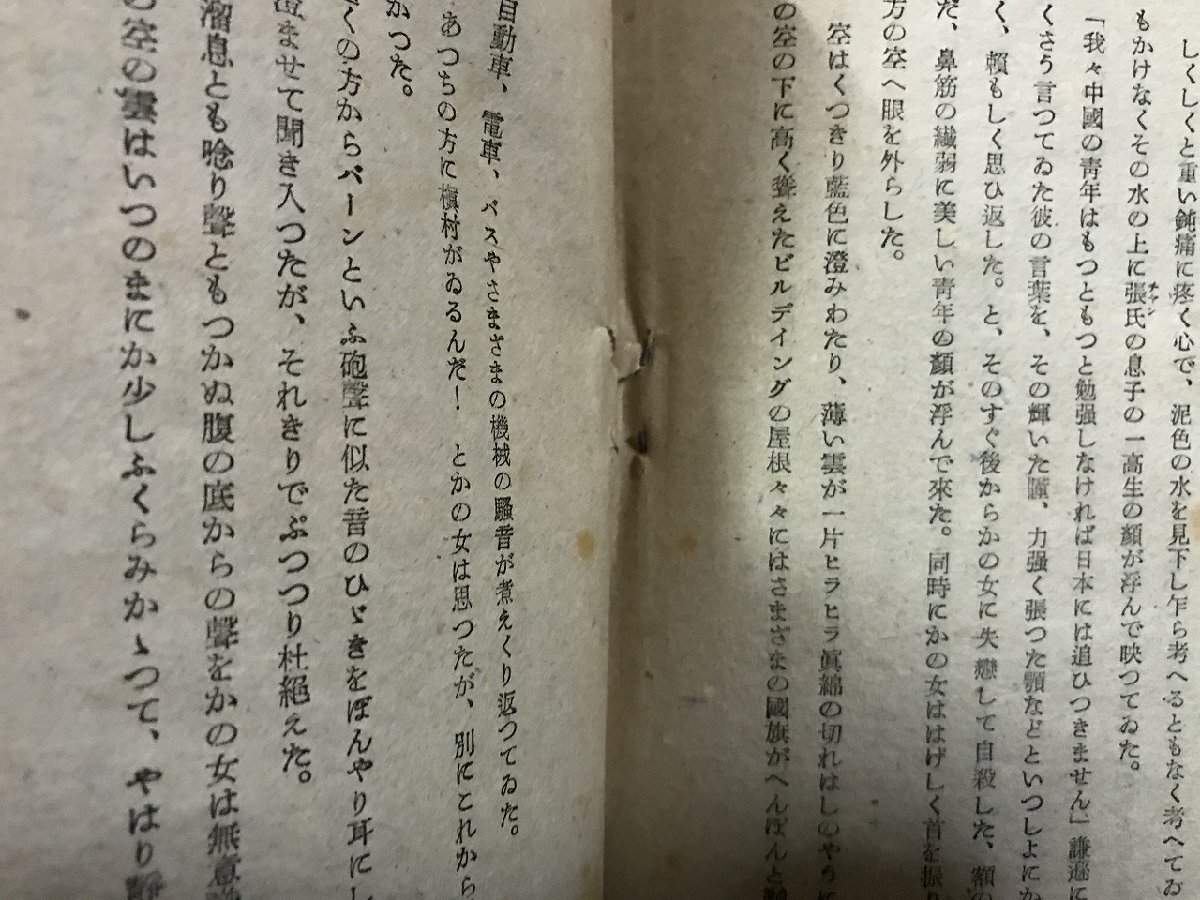 しくしくと重い鈍痛に疼く心で、泥色の水を見下し乍ら考へるともなく考へてゐ
もかけなくその水の上に張氏の息子の一高生の顏が浮んで映つてゐた。
チヤン
「我々中國の靑年はもつともつと勉强しなければ日本には追ひつきません」謙遜に
くさう言つてゐた彼の言葉を、その輝いた瞳、力强く張つた顎などといつしよにか
く、賴もしく思ひ返した。と、そのすぐ後からかの女に失戀して自殺した、額の
だ、鼻筋の繊弱に美しい靑年の顏が浮んで來た。同時にかの女ははげしく首を振り
方の空へ眼を外らした。
空はくつきり藍色に澄みわたり、薄い雲が一片ヒラヒラ眞綿の切れはしのやうに
の空の下に高く聳えたビルデイングの屋根々々にはさまざまの國旗がへんぽんと
自動車、電車、バスやさまざまの機械の騷音が煮えくり返つてゐた。
あつちの方に槇村がゐるんだ！　とかの女は思つたが、別にこれから
かつた。
くの方からバーンといふ砲聲に似た音のひゞきをぼんやり耳にし
澄ませて聞き入つたが、それきりでぷつつり杜絕えた。
溜息とも唸り聲ともつかぬ腹の底からの聲をかの女は無意
空の雲はいつのまにか少しふくらみかゝつて、やはり靜